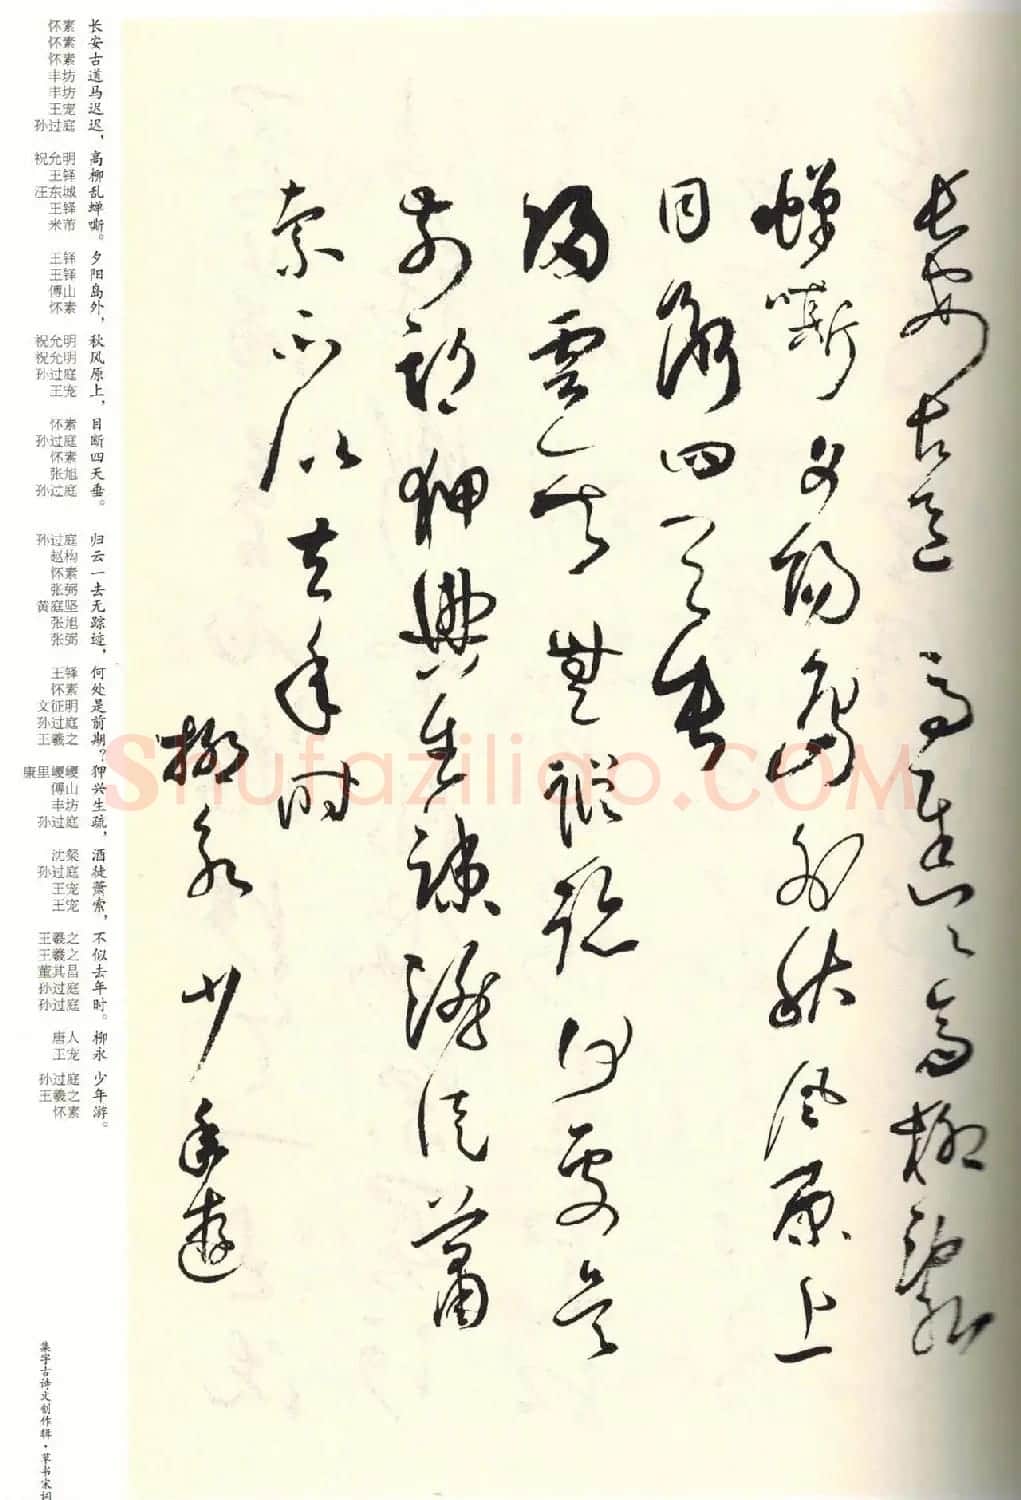 長安古道馬遲々高柳亂
蟬嘶夕陽島外秋風原上
目斷四天垂
歸雲一去無蹤跡何處是
前期狎興生疎酒徒蕭
索不似去年時
柳永少年遊
长安古道马迟迟，高柳乱蝉嘶。夕阳岛外，秋风原上，目断四天垂。归云一去无踪迹，何处是前期？狎兴生疏，酒徒萧索，不似去年时。柳永 少年游。
怀素 怀素 怀素 丰坊 丰坊 王宠 孙过庭 祝允明 王铎 汪东城 王铎 米芾 王铎 王铎 傅山 怀素 祝允明 祝允明 孙过庭 王宠 怀素 孙过庭 怀素 张旭 孙过庭 孙过庭 赵构 怀素 张弼 黄庭坚 张旭 张弼 王铎 怀素 文征明 孙过庭 王羲之 康里巎巎 傅山 丰坊 孙过庭 沈粲 孙过庭 王宠 王宠 王羲之 王羲之 董其昌 孙过庭 孙过庭 唐人 王宠 孙过庭 王羲之 怀素
集字古诗文创作辑·草书宋词
Shufaziliao.COM